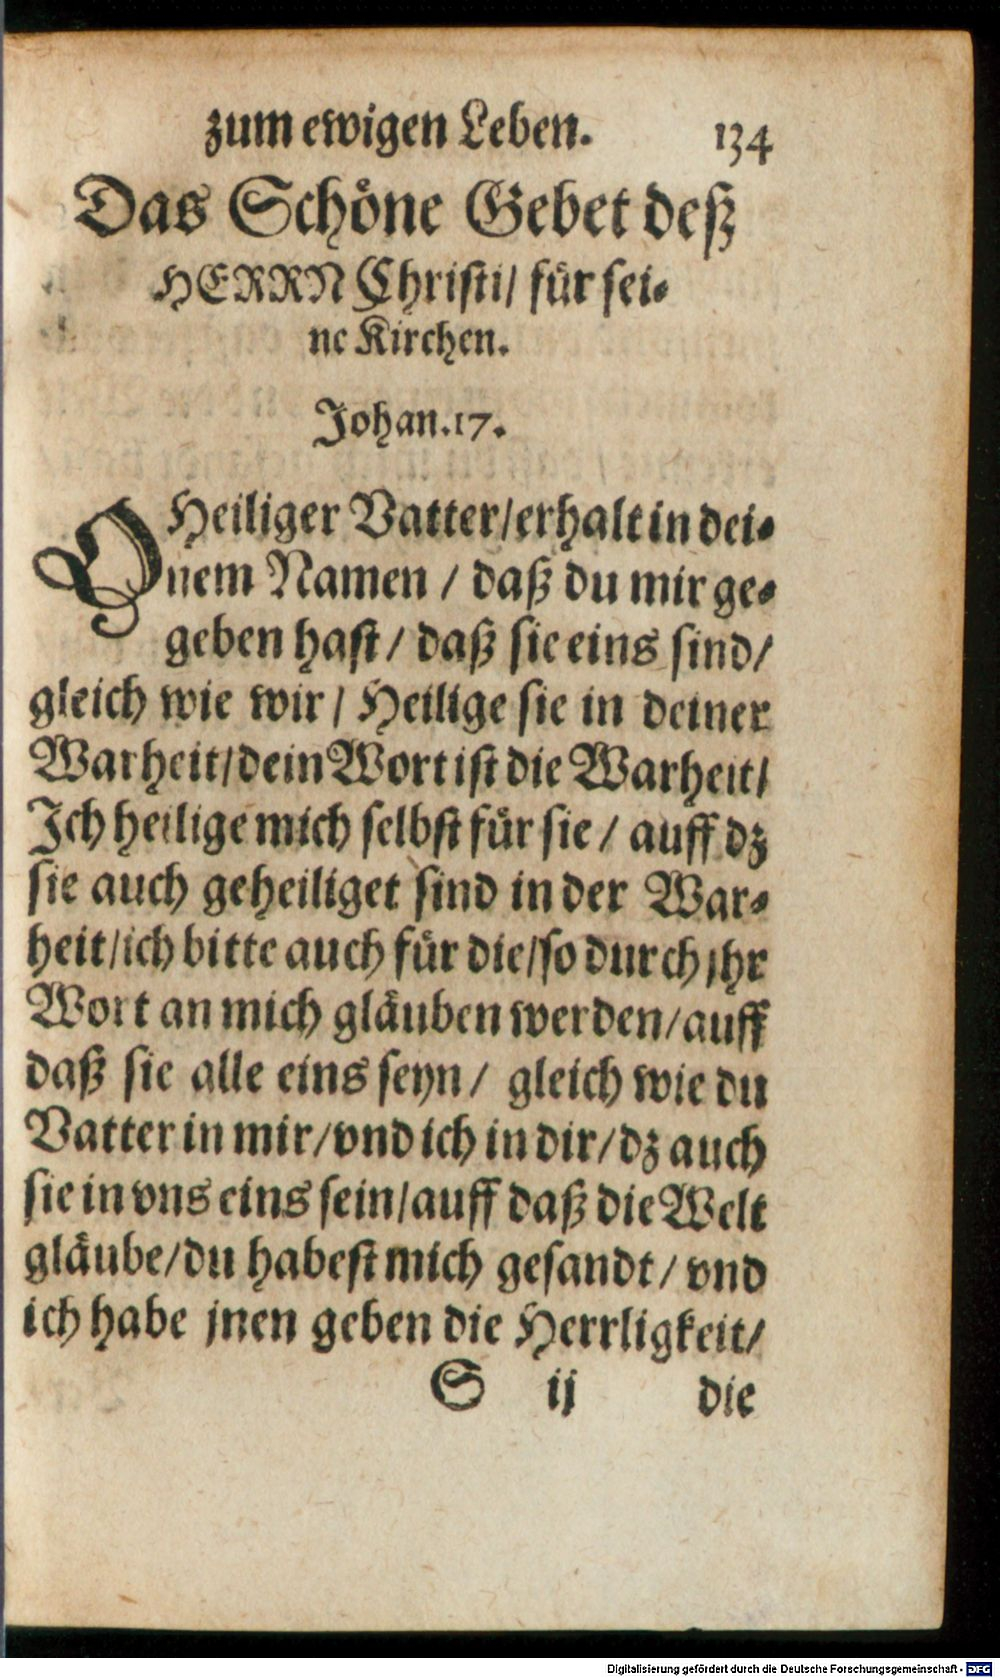 zum ewigen Leben. 134
Das Schöne Gebet deß
HERRN Christi/ für sei-
ne Kirchen.
Johan. 17.
O Heiliger Vatter/ erhalt in dei-
nem Namen / daß du mir ge-
geben hast/ daß sie eins sind/
gleich wie wir/ Heilige sie in deiner
Warheit/ dein Wort ist die Warheit/
Ich heilige mich selbst für sie/ auff dz
sie auch geheiliget sind in der War-
heit/ ich bitte auch für die/ so durch jhr
Wort an mich gläuben werden/ auff
daß sie alle eins seyn/ gleich wie du
Vatter in mir/ vnd ich in dir/ dz auch
sie in vns eins sein/ auff daß die Welt
gläube/ du habest mich gesandt/ vnd
ich habe jnen geben die Herrligkeit/
S ij die
Digitalisierung gefördert durch die Deutsche Forschungsgemeinschaft - DFG